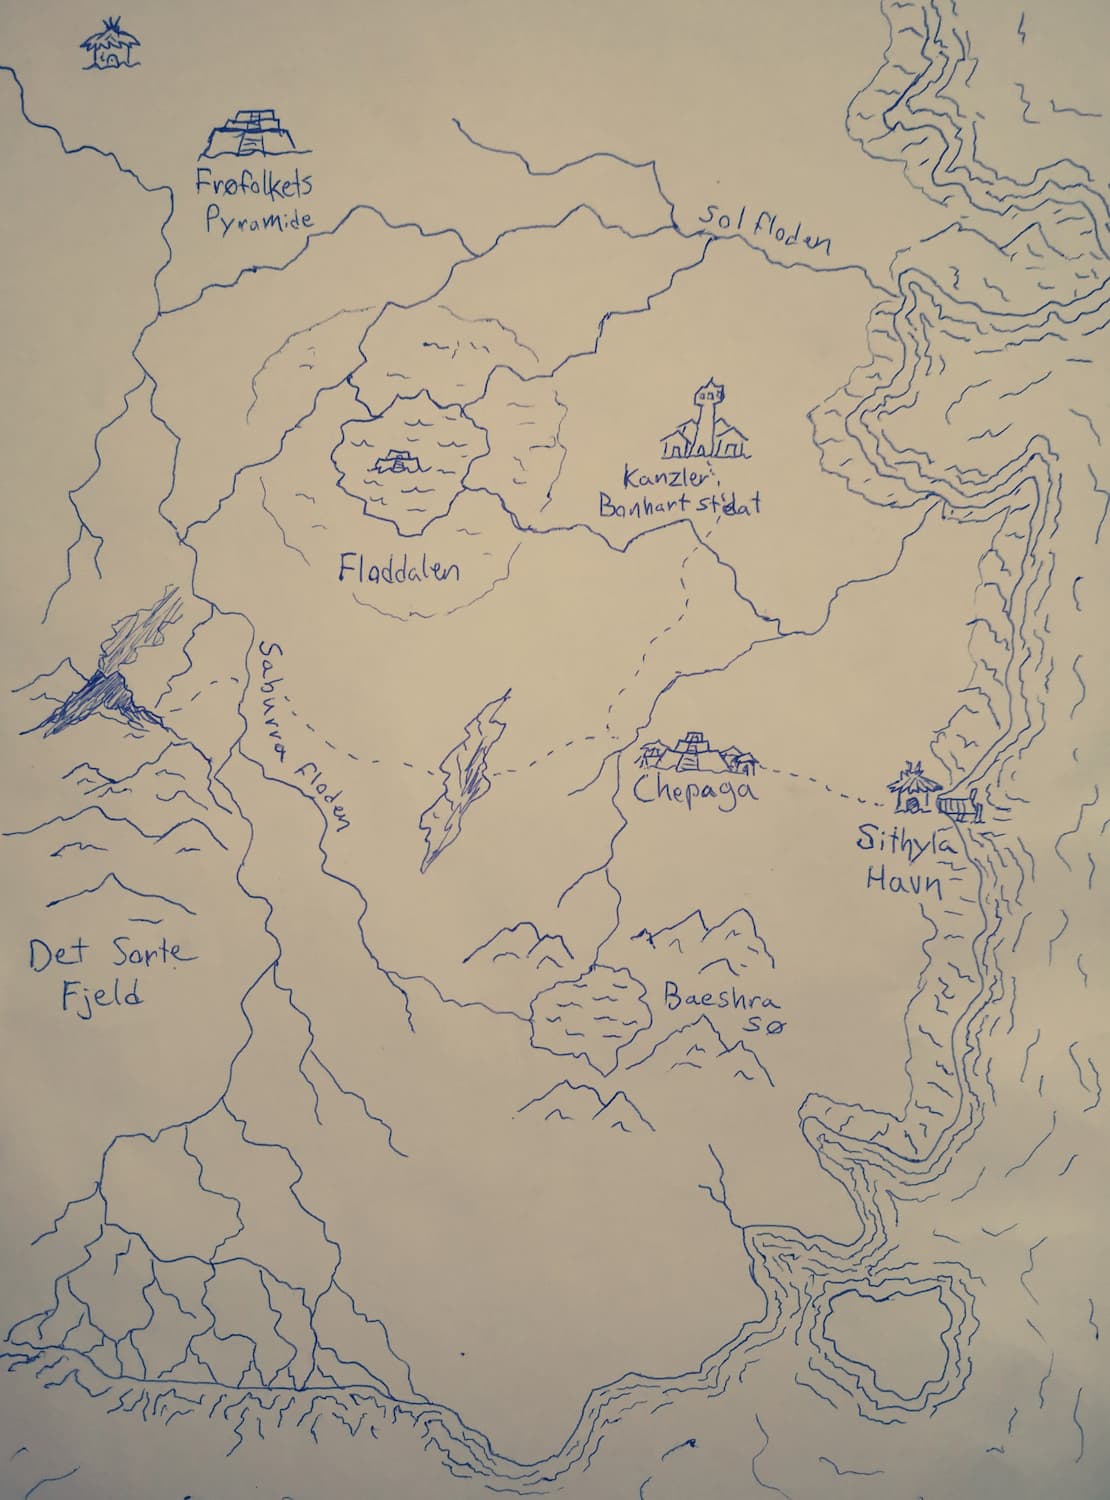 Frøfolkets
Pyramide
Solfloden
Kanzler
Bonhart st dat
Floddalen
Saburra floden
Chepaga
Sithyla
Havn
Det Sorte
Fjeld
Baeshra
sø